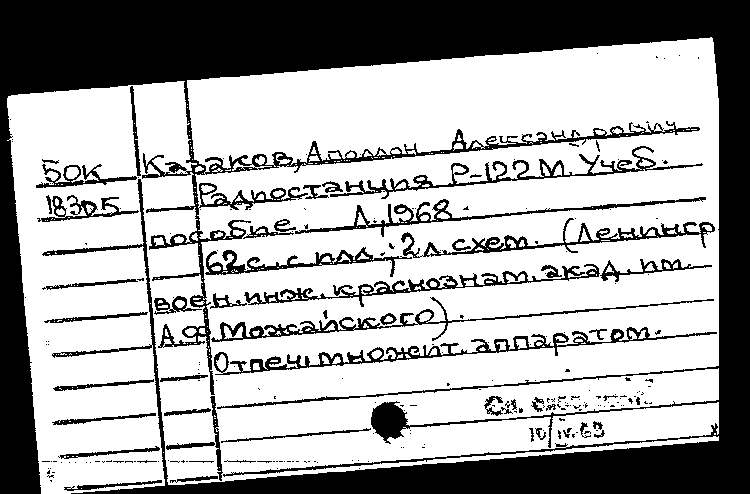 50К Казаков, Аполлон Александрович
18305 Радиостанция Р-122М. Учеб.
пособие. Л., 1968.
62с. с илл.; 2л. схем. (Ленингр
воен. инж. краснознам. акад. им.
А.Ф. Можайского).
Отпеч. множит. аппаратом.
10/IV.69